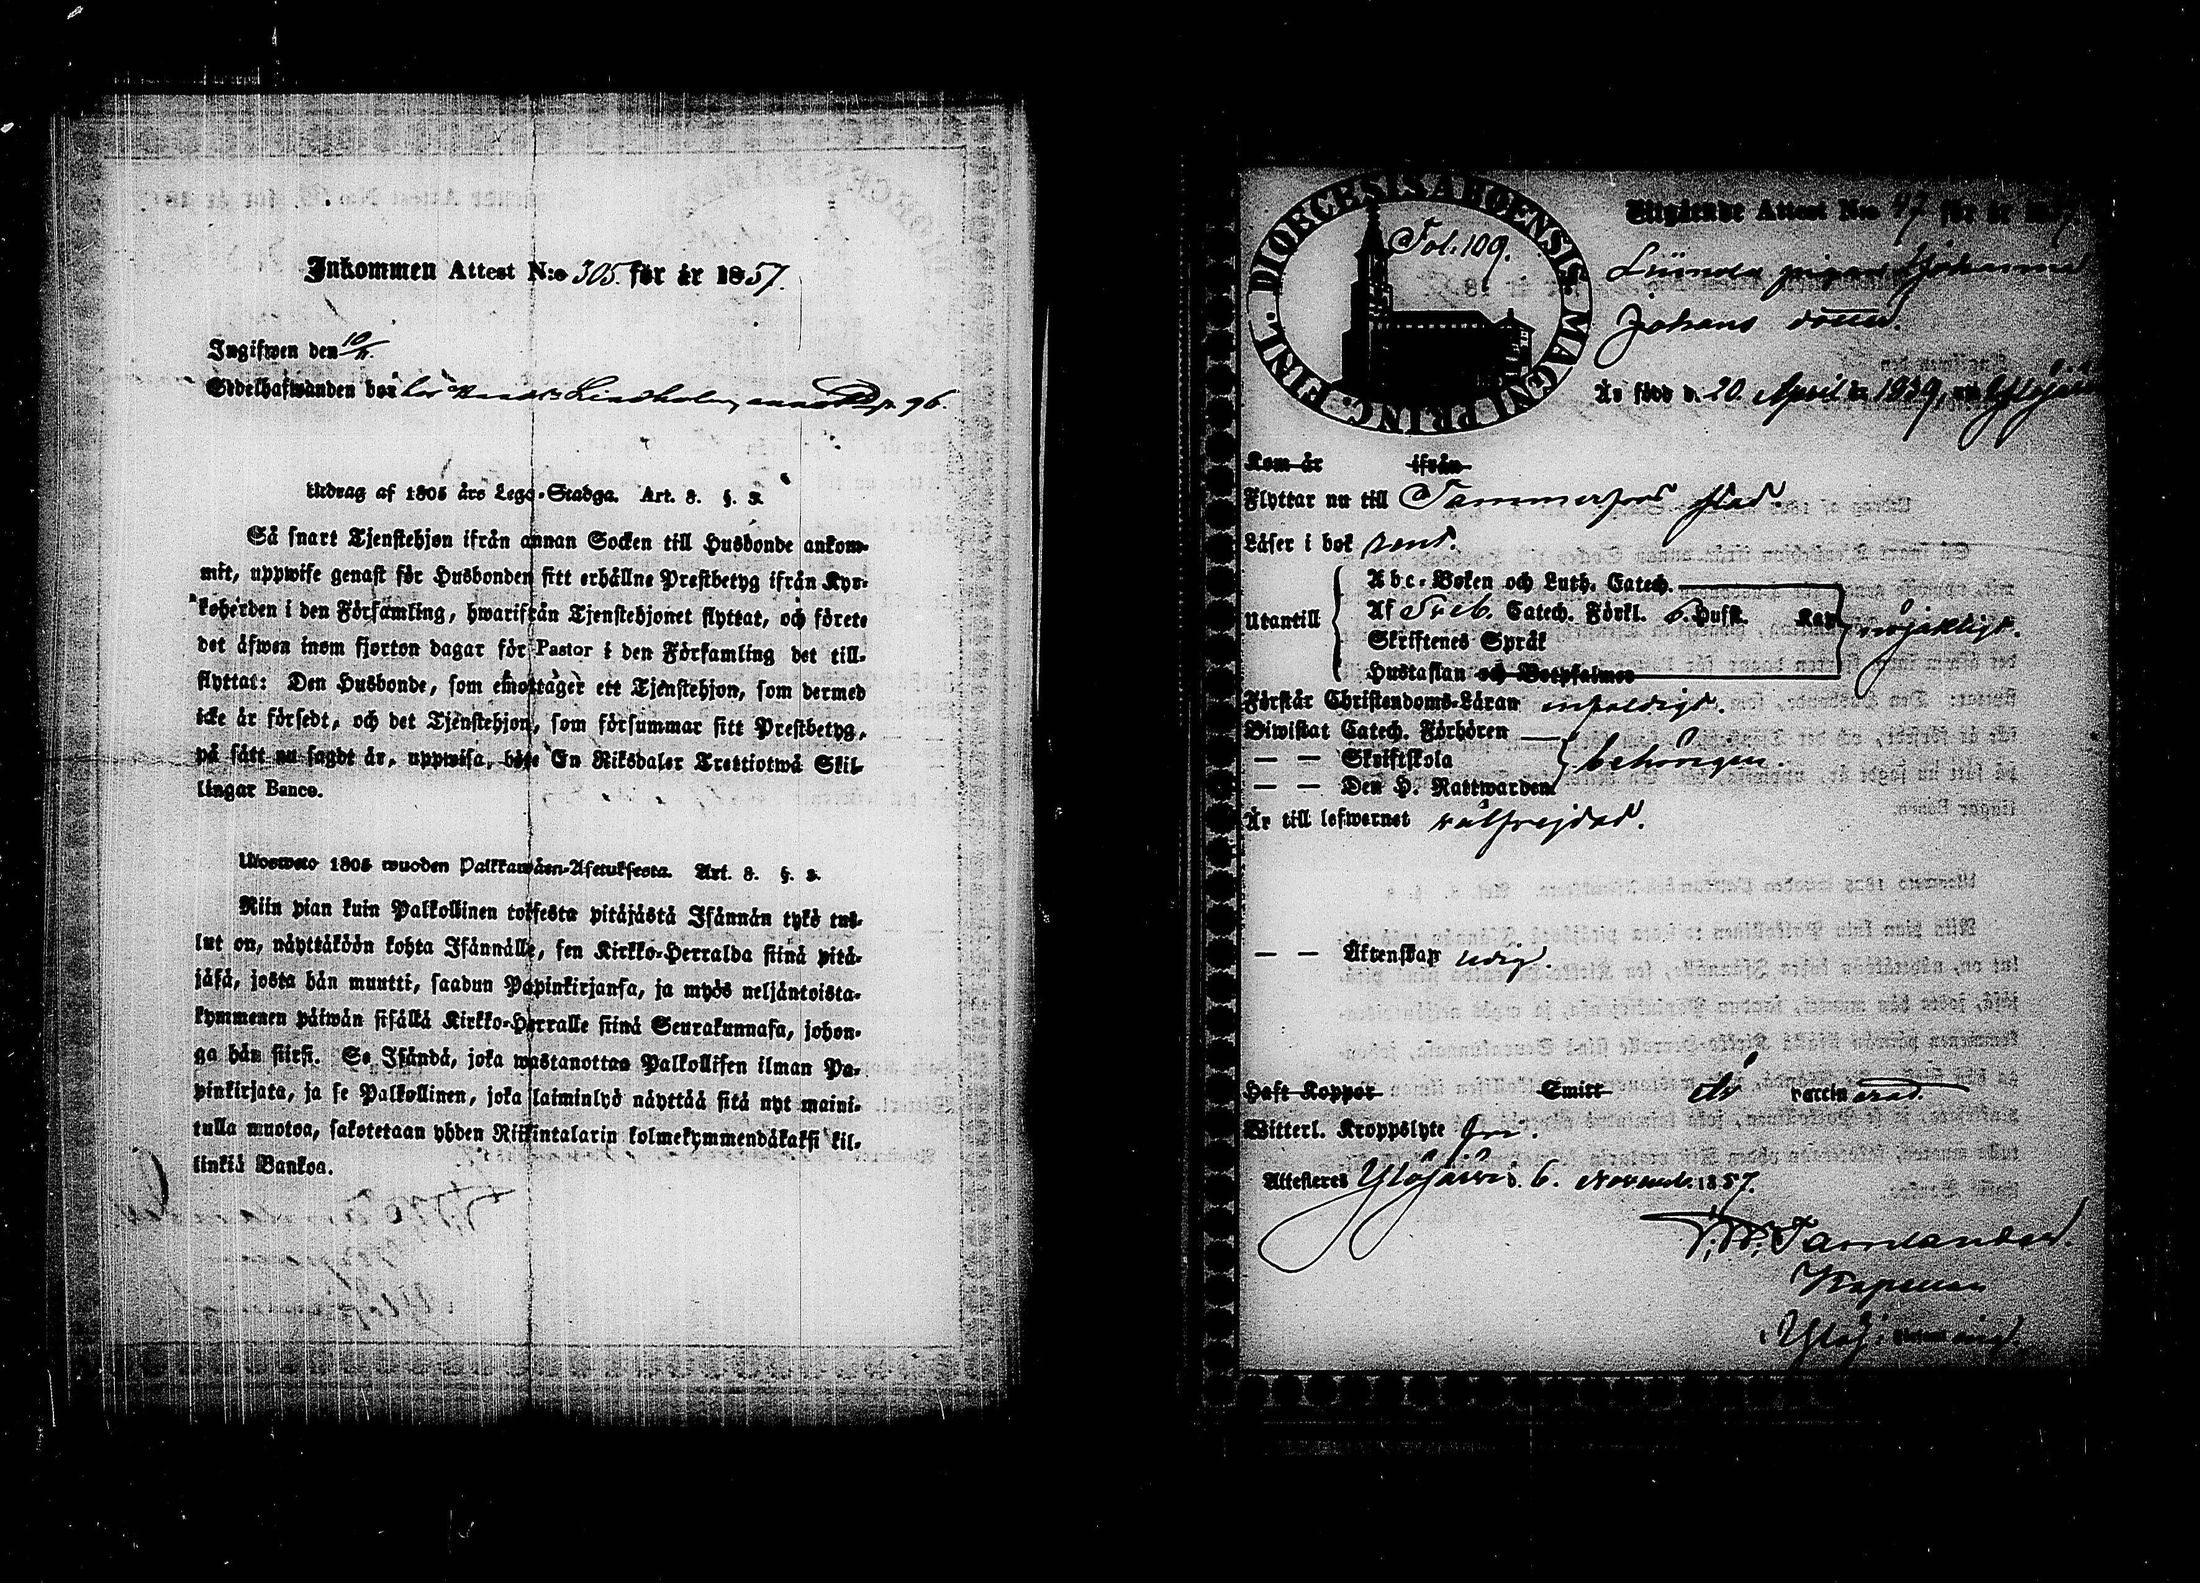 Inkommen Attest N:o 305. för år 1857.
Ingifwen den 10/11.
Gedelhafwanden hos Lindholm pag. 96.
Utdrag af 1805 års Lego-Stadga. Art. 8. §. 2.
Så snart Tjenstehjon ifrån annan Socken till Husbonde ankom-
mit, uppwise genast för Husbonden sitt erhållne Prestbetyg ifrån Kyr-
koherden i den Församling, hwarifrån Tjenstehjonet flyttat, och förete
det äfwen inom fjorton dagar för Pastor i den Församling det till-
flyttat: Den Husbonde, som emottager ett Tjenstehjon, som dermed
icke är försedt, och det Tjenstehjon, som försummar sitt Prestbetyg,
på sätt nu sagdt är, uppwisa, böte En Riksdaler Trettiotwå Skil-
lingar Banco.
Ulosweto 1805 wuoden Palkkawäen-Asetuksesta. Art. 8. §. 2.
Niin pian kuin Palkollinen toisesta pitäjästä Isännän tykö tul-
lut on, näyttäköön kohta Isännälle, sen Kirkko-Herralda siinä pitä-
jäsä, josta hän muutti, saadun Papinkirjansa, ja myös neljäntoista-
kymmenen päiwän sisällä Kirkko-Herralle siinä Seurakunnasa, johon-
ga hän siirsi. Se Isändä, joka wastanottaa Palkollisen ilman Pa-
pinkirjata, ja se Palkollinen, joka laiminlyö näyttää sitä nyt maini-
tulla muotoa, sakotetaan yhden Riikintalarin kolmekymmendäkaksi kil-
linkiä Bankoa.
DIOECESIS ABOENSIS. MAGNI PRINC. FINL.
Fol. 109.
Utgående Attest N:o 97. för år 1857
pigan Johanna
Johans dotter.
Är född d. 20 April år 1839, uti Ylöjärvi
Kom år ifrån
Flyttar nu till Tammerfors stad.
Läser i bok rent.
Utantill
Abc-Boken och Luth. Catech.
Af Sveb. Catech. Förkl. 6. Hufst. Kap. nöjaktigt.
Skriftenes Språk
Hustaflan och Botpsalmer
Förstår Christendoms-Läran enfaldigt.
Biwistat Catech. Förhören
— — Skriftskola behörigen.
— — Den H. Nattwarden
Är till lefwernet välfrejdad.
— — Äktenskap ledig.
Haft Koppor Smitt Är vaccinerad.
Witterl. Kroppslyte fri.
Attesteres Ylöjärvi d. 6. Novemb. 1857.
Kapellan